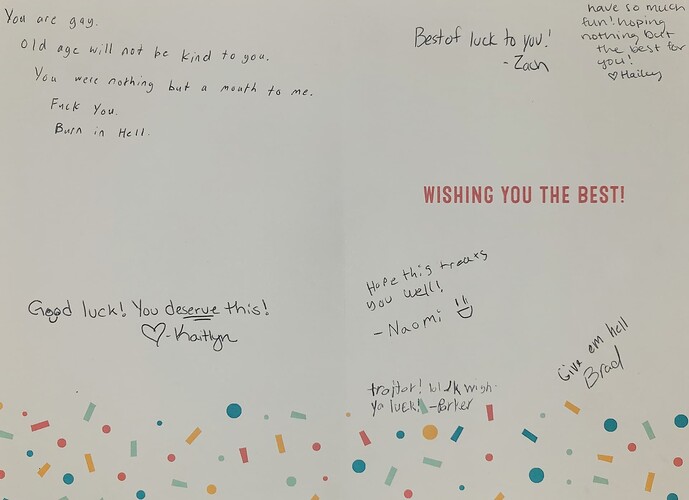 You are gay.
Old age will not be kind to you.
You were nothing but a mouth to me.
Fuck You.
Burn in Hell.
Good luck! You deserve this!
♡-Kaitlyn
Best of luck to you!
- Zach
have so much
fun! hoping
nothing but
the best for
you!
♡Hailey
WISHING YOU THE BEST!
Hope this treats
you well!
- Naomi
Give em hell
Brad
traitor! wish
ya luck! -Parker